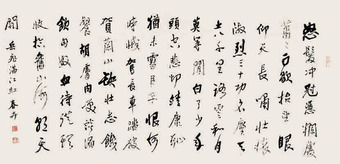 怒髮冲冠憑欄處
瀟瀟雨歇抬望眼
仰天長嘯壯懷
激烈三十功名塵
土八千里路雲和月
莫等閑白了少年
頭空悲切靖康恥
猶未雪臣子恨何
時滅駕長車踏破
賀蘭山缺壯志飢
餐胡虜肉笑談渴
飲匈奴血待從頭
收拾舊山河朝天
闕 岳飛滿江紅